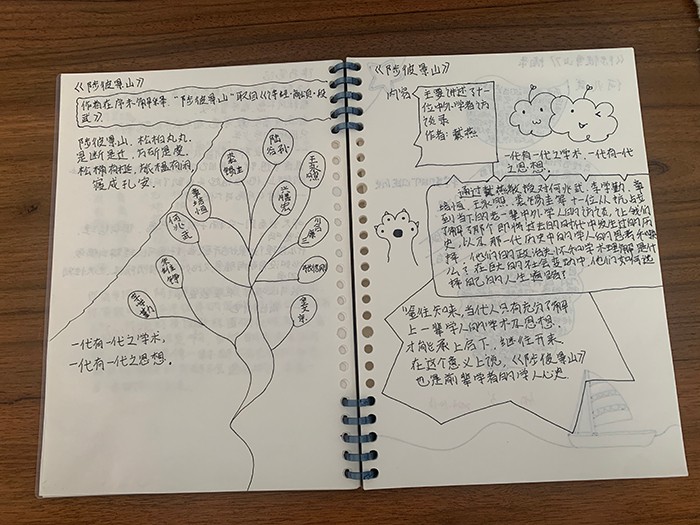 《陟彼景山》
作者在序术解释, "陟彼景山"取自《诗经·商颂·殷
武》.
陟彼景山, 松柏丸丸.
是断是迁, 方斫是虔.
松桷有梴, 旅楹有闲,
寝成孔安.
陆谷孙
王水照
裘锡圭
兴膳宏
章培恒
川合
康三
何兆武
张信刚
李学勤
金文京
一代有一代之学术,
一代有一代之思想.
《陟彼景山》
内容
主要讲述了十一
位中外学者访
谈录
作者: 戴燕
一代有一代之学术, 一代有一代
之思想.
通过戴燕教授对何兆武 李学勤 章
培恒 王水照 裘锡圭等十一位从抗战
到当下的老一辈中外学人的访谈, 让我们
了解了那个即将过去的时代中发生过的历
史, 以及那一代历史中的学人们的思考和
择, 他们的政治关怀和学术理解是什
么? 在巨大的社会变动中, 他们如何选
择自己的人生道路?
鉴往知味, 当代人只有充分了解
上一辈学人的学术及思想,
才能承上启下, 继往开来
在这个意义上说, 《陟彼景山》
也是前辈学者的学人心史